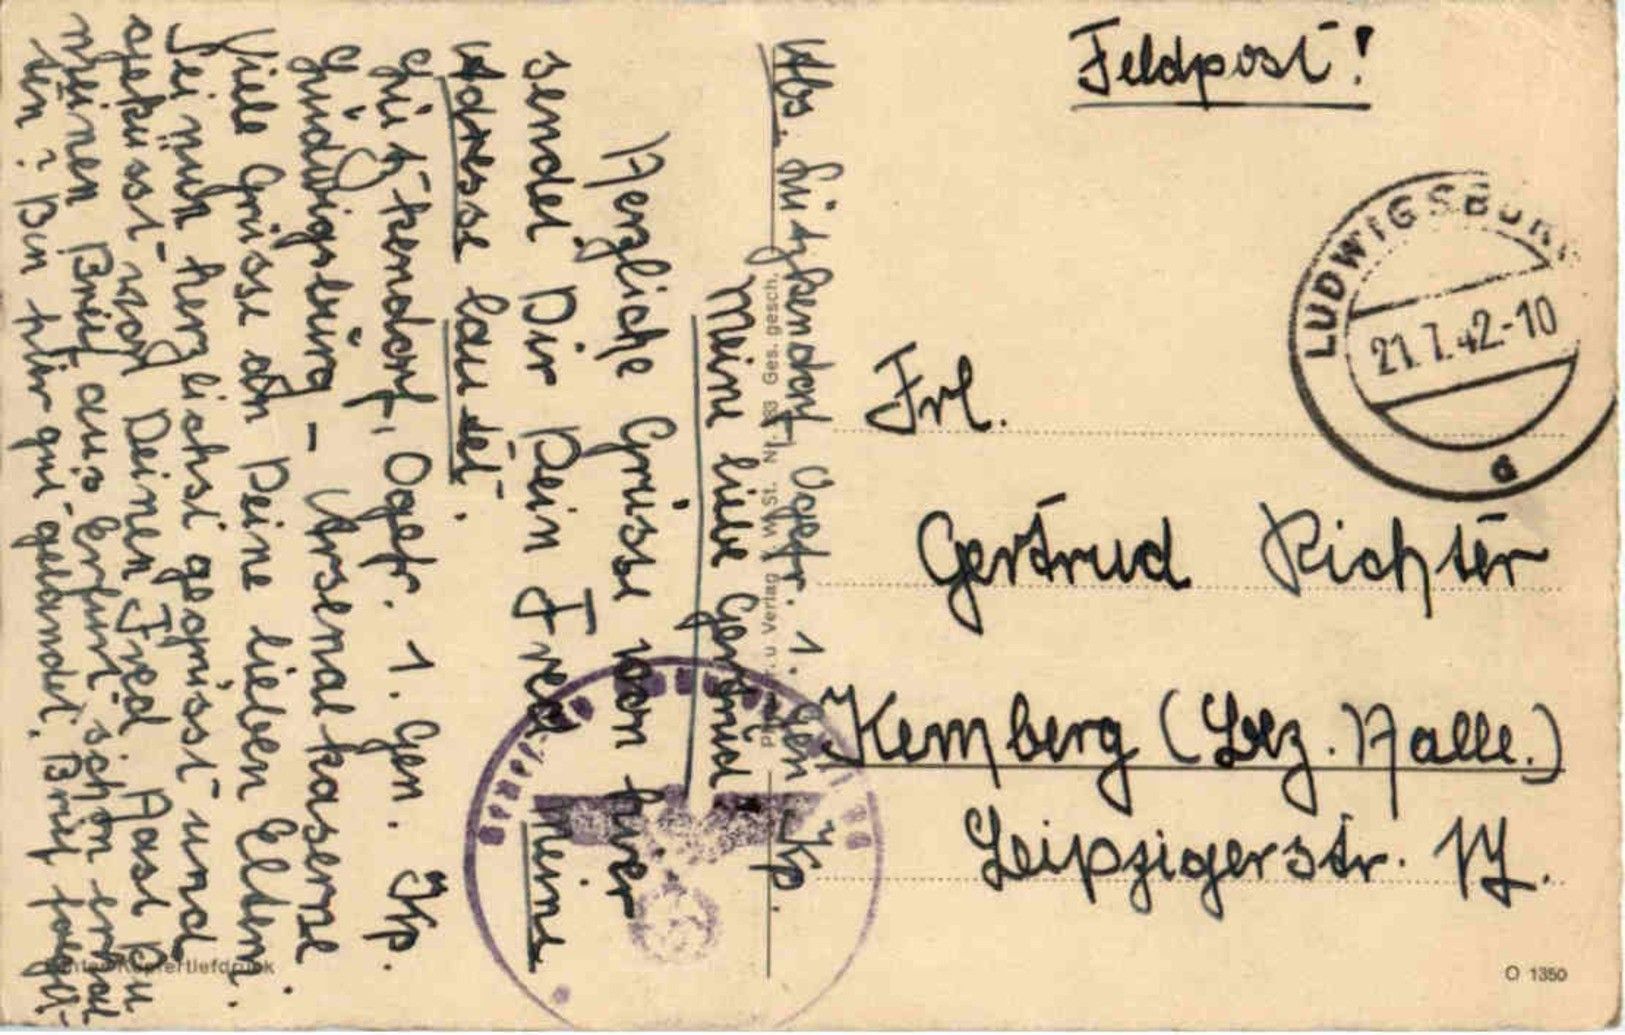 Feldpost!
LUDWIGSBURG
21.7.42.-10
a
Frl.
Gertrud Richter
Kemberg (Bez. Halle.)
Leipzigerstr.
Abs. Lützkendorf, Ogefr. 1. Gen. Kp.
Meine liebe Gertrud
Herzliche Grüsse von hier
sendet Dir Dein Fred Meine
Adresse lautet.
Lützkendorf, Ogefr. 1. Gen. Kp.
Ludwigsburg – Arsenalkaserne
Viele Grüsse an Deine lieben Eltern.
Sei nun herzlichst gegrüsst und
geküsst von Deinen Fred. Hast Du
meinen Brief aus Erfurt schon erhal
ten? Bin hier gut gelandet. Brief folgt.
u Verlag W. St. Nr. Ges. gesch.
Kupfertiefdruck
O 1350